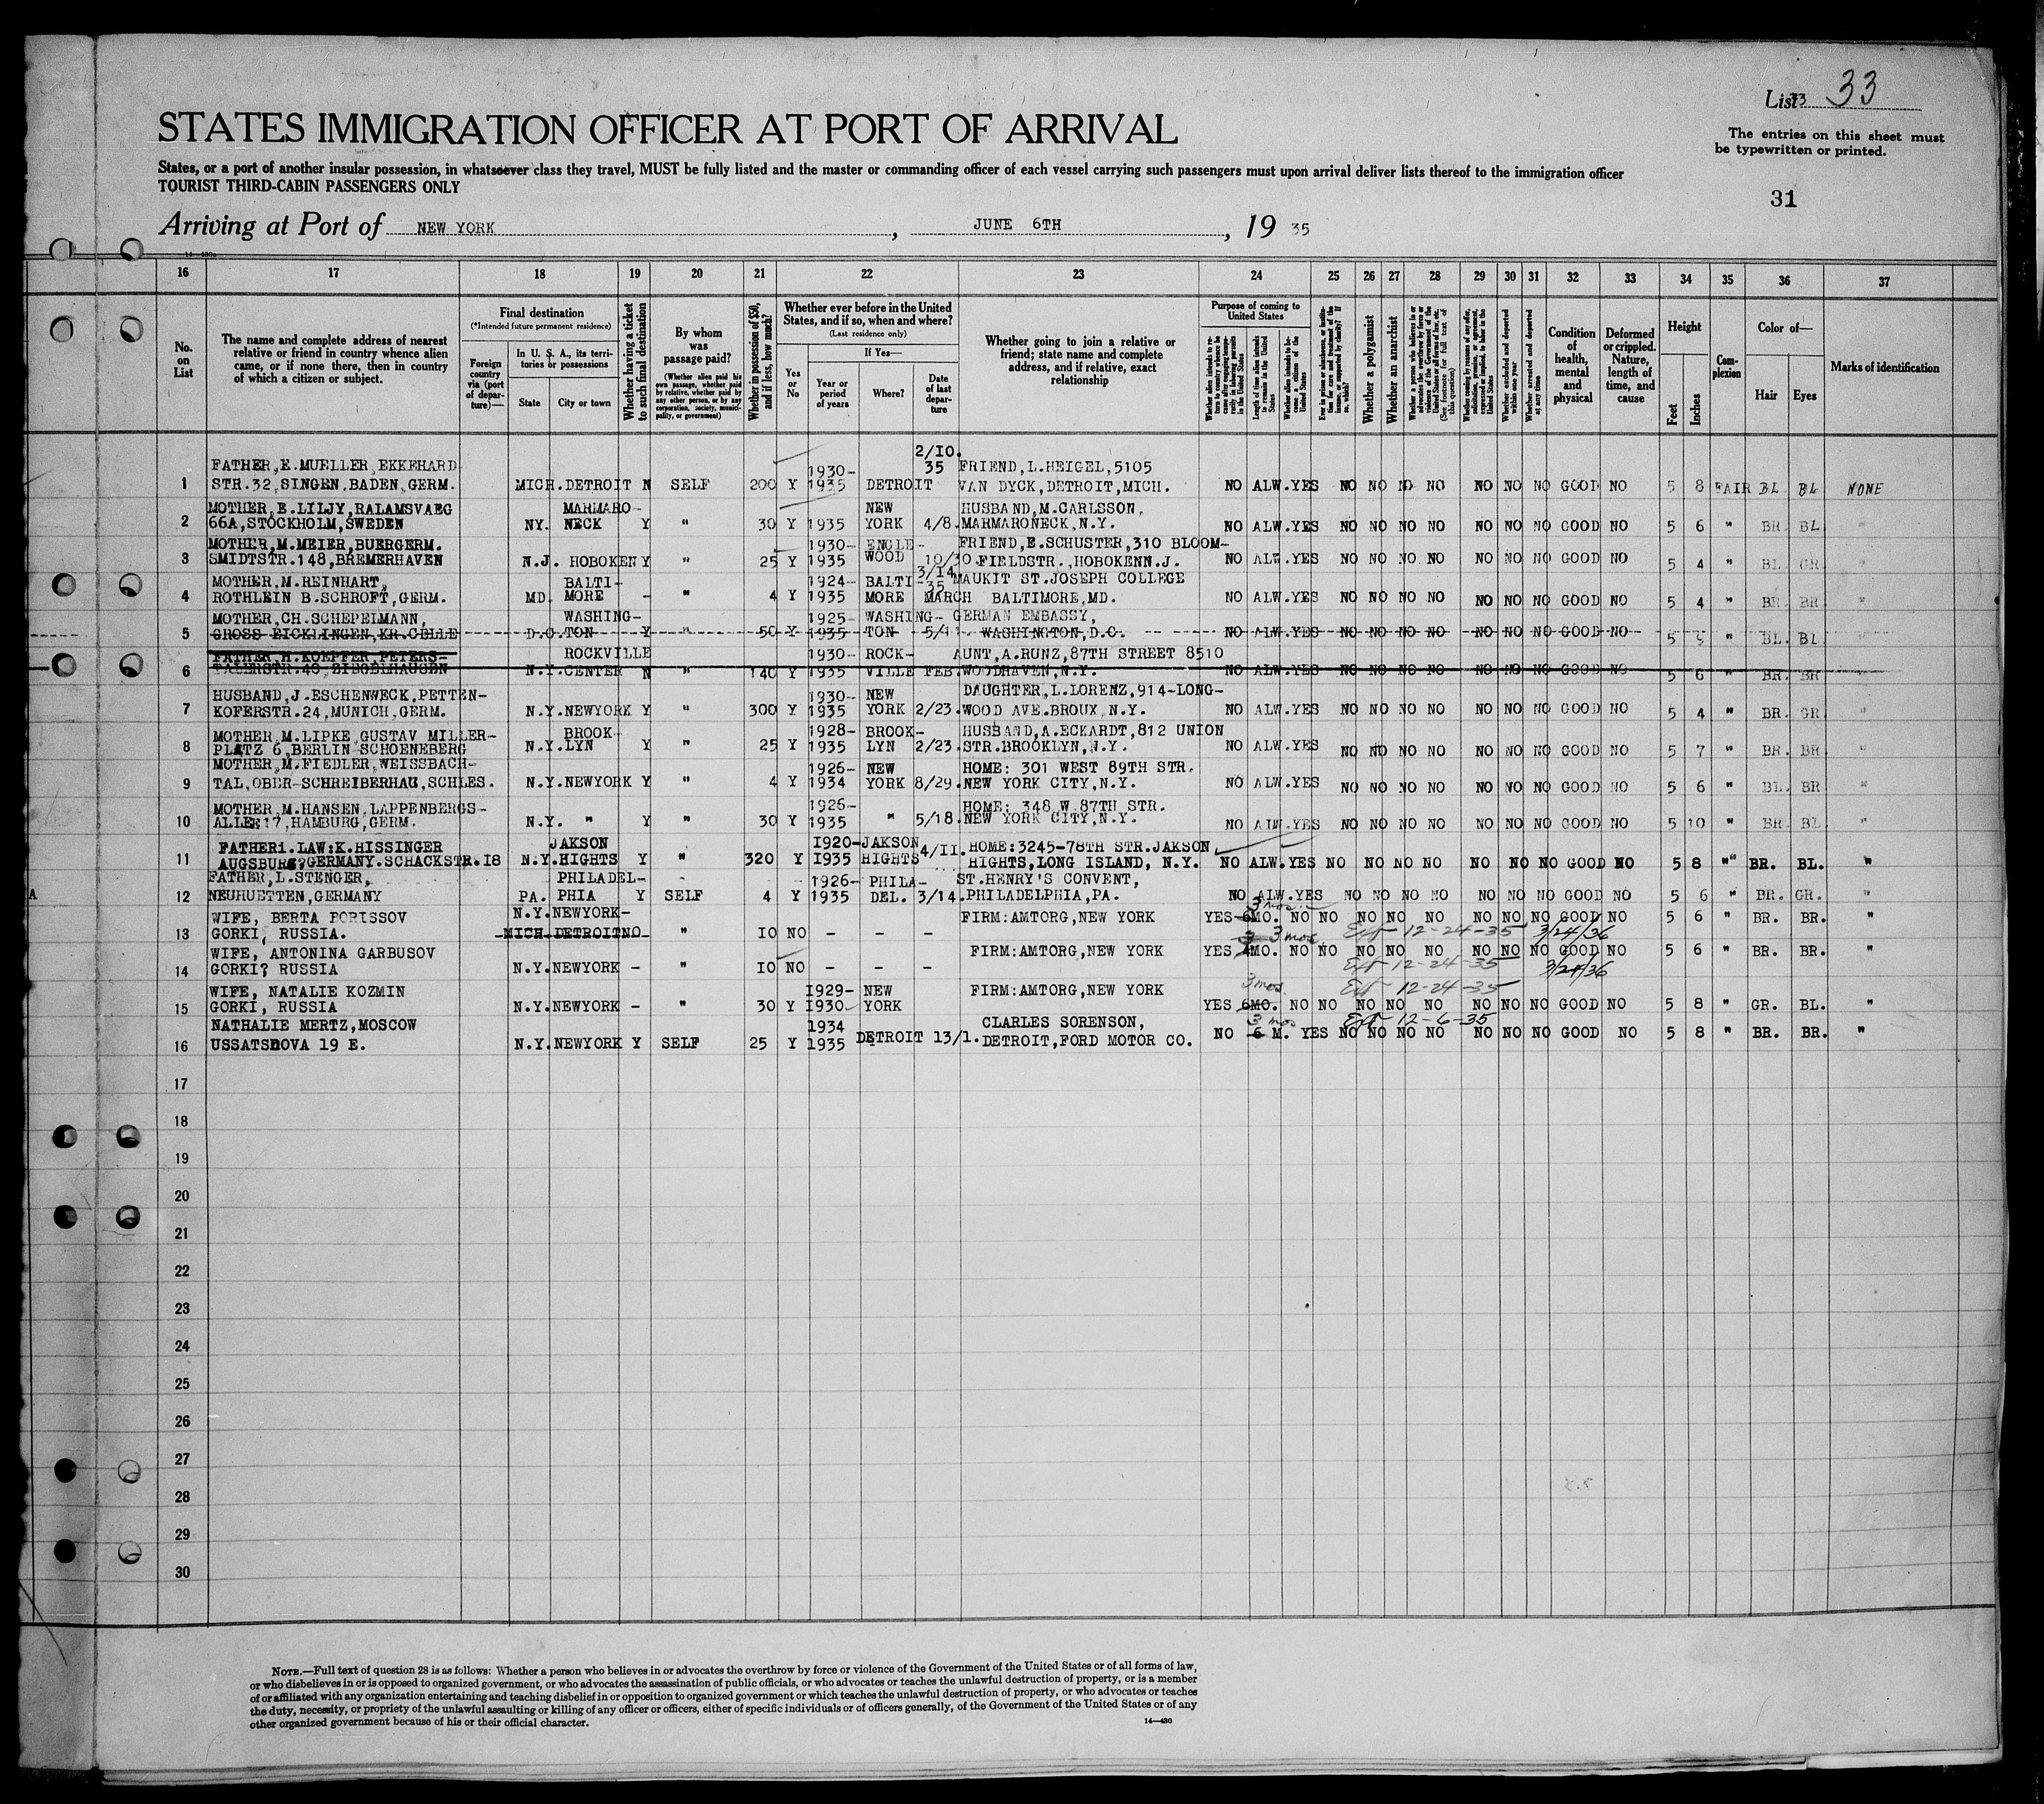 List 33 33
The entries on this sheet must
be typewritten or printed.
STATES IMMIGRATION OFFICER AT PORT OF ARRIVAL
States, or a port of another insular possession, in whatsoever class they travel, MUST be fully listed and the master or commanding officer of each vessel carrying such passengers must upon arrival deliver lists thereof to the immigration officer
TOURIST THIRD-CABIN PASSENGERS ONLY
31
Arriving at Port of NEW YORK, JUNE 6TH, 19 35
16 17 18 19 20 21 22 23 24 25 26 27 28 29 30 31 32 33 34 35 36 37
No. on List
The name and complete address of nearest relative or friend in country whence alien came, or if none there, then in country of which a citizen or subject.
Final destination
(*Intended future permanent residence)
Foreign country via (port of departure)—
In U. S. A., its territories or possessions
State
City or town
Whether having a ticket to such final destination
By whom was passage paid?
(Whether alien paid his own passage, whether paid by relative, whether paid by any other person, or by any corporation, society, municipality, or government)
Whether in possession of $50, and if less, how much?
Whether ever before in the United States, and if so, when and where?
(Last residence only)
Yes or No
If Yes—
Year or period of years
Where?
Date of last departure
Whether going to join a relative or friend; state name and complete address, and if relative, exact relationship
Purpose of coming to United States
Length of time alien intends to remain in the United States
Whether alien intends to become a citizen of the United States
Whether a polygamist
Whether an anarchist
Whether excluded and deported within one year
Whether arrested and deported at any time
Condition of health, mental and physical
Deformed or crippled. Nature, length of time, and cause
Height
Feet
Inches
Complexion
Color of—
Hair
Eyes
Marks of identification
2/10.
FATHER,E.MUELLER,EKKEHARD 1930- 35 FRIEND,L.HEIGEL,5105
1 STR.32,SINGEN,BADEN,GERM. MICH.DETROIT N SELF 200 Y 1935 DETROIT VAN DYCK,DETROIT,MICH. NO ALW.YES NO NO NO NO NO NO NO GOOD NO 5 8 FAIR BL BL NONE
MOTHER,E.LILJY,RALAMSVAEG MARMARO- NEW HUSBAND,M.CARLSSON,
2 66A,STOCKHOLM,SWEDEN NY. NECK Y " 30 Y 1935 YORK 4/8. MARMARONECK,N.Y. NO ALW.YES NO NO NO NO NO NO NO GOOD NO 5 6 " BR. BL "
MOTHER,M.MEIER,BUERGERM. 1930- ENGLE- FRIEND,E.SCHUSTER,310 BLOOM-
3 SMIDTSTR.148,BREMERHAVEN N.J. HOBOKEN Y " 25 Y 1935 WOOD 10/30. FIELDSTR.,HOBOKENN.J. NO ALW.YES NO NO NO NO NO NO NO GOOD NO 5 4 " BL GR "
MOTHER,M.REINHART, BALTI- 1924- BALTI- 3/14 35 MAUKIT ST.JOSEPH COLLEGE
4 ROTHLEIN B.SCHROFT,GERM. MD. MORE - " 4 Y 1935 MORE MARCH BALTIMORE,MD. NO ALW.YES NO NO NO NO NO NO NO GOOD NO 5 4 " BR BR "
MOTHER,CH.SCHEPELMANN, WASHING- 1925- WASHING- GERMAN EMBASSY,
5 GROSS EICKLINGEN,KR.CELLE D.C.TON Y " 50 Y 1935 TON 5/1 WASHINGTON,D.C. NO ALW.YES NO NO NO NO NO NO NO GOOD NO 5 5 " BL. BL "
FATHER H.KOEPFER PETERS- ROCKVILLE 1930- ROCK- AUNT,A.RUNZ,87TH STREET 8510
6 TALERSTR.43, ZIEGELHAUSEN N.Y.CENTER N " 140 Y 1935 VILLE FEB. WOODHAVEN,N.Y. NO ALW.YES NO NO NO NO NO NO NO GOOD NO 5 6 " BR. BR
HUSBAND,J.ESCHENWECK,PETTEN- 1930- NEW DAUGHTER,L.LORENZ,914-LONG-
7 KOFERSTR.24,MUNICH,GERM. N.Y.NEWYORK Y " 300 Y 1935 YORK 2/23. WOOD AVE.BROUX,N.Y. NO ALW.YES NO NO NO NO NO NO NO GOOD NO 5 4 " BR. GR "
MOTHER M.LIPKE GUSTAV MILLER- BROOK- 1928- BROOK- HUSBAND,A.ECKARDT,812 UNION
8 PLATZ 6,BERLIN SCHOENEBERG N.Y.LYN Y " 25 Y 1935 LYN 2/23. STR.BROOKLYN,N.Y. NO ALW.YES NO NO NO NO NO NO NO GOOD NO 5 7 " BR. BR "
MOTHER,M.FIEDLER,WEISSBACH- 1926- NEW HOME: 301 WEST 89TH STR.
9 TAL,OBER-SCHREIBERHAU,SCHLES. N.Y.NEWYORK Y " 4 Y 1934 YORK 8/29. NEW YORK CITY,N.Y. NO ALW.YES NO NO NO NO NO NO NO GOOD NO 5 6 " BL. BR "
MOTHER,M.HANSEN,LAPPENBERGS- 1926- HOME: 348 W.87TH STR.
10 ALLEE17,HAMBURG,GERM. N.Y. " Y " 30 Y 1935 " 5/18. NEW YORK CITY,N.Y. NO ALW.YES NO NO NO NO NO NO NO GOOD NO 5 10 " BR. BL "
FATHERi.LAW:K.HISSINGER JAKSON I920- JAKSON 4/II. HOME:3245-78TH STR.JAKSON
11 AUGSBURG?GERMANY.SCHACKSTR.I8 N.Y.HIGHTS Y " 320 Y I935 HIGHTS HIGHTS,LONG ISLAND, N.Y. NO ALW.YES NO NO NO NO NO NO NO GOOD NO 5 8 "" BR. BL. "
FATHER,L.STENGER, PHILADEL- 1926- PHILA- ST.HENRY'S CONVENT,
A 12 NEUHUETTEN,GERMANY PA. PHIA Y SELF 4 Y 1935 DEL. 3/14. PHILADELPHIA,PA. NO ALW.YES NO NO NO NO NO NO NO GOOD NO 5 6 " BR. GR. "
3 mos.
WIFE, BERTA PORISSOV N.Y.NEWYORK- FIRM:AMTORG,NEW YORK YES 6MO. NO NO NO NO NO NO NO NO GOOD NO 5 6 " BR. BR. "
13 GORKI, RUSSIA. MICH.DETROITNO " IO NO - - - 3 mos. Ext 12-24-35 3/24/36
WIFE, ANTONINA GARBUSOV FIRM:AMTORG,NEW YORK YES MO. NO NO NO NO NO NO NO NO GOOD NO 5 6 " BR. BR. "
14 GORKI? RUSSIA N.Y.NEWYORK - " IO NO - - - Ext 12-24-35 3/24/36
WIFE, NATALIE KOZMIN I929- NEW FIRM:AMTORG,NEW YORK 3 mos. Ext 12-24-35
15 GORKI, RUSSIA N.Y.NEWYORK - " 30 Y I930 YORK YES 6MO. NO NO NO NO NO NO NO NO GOOD NO 5 8 " GR. BL. "
NATHALIE MERTZ,MOSCOW 1934 CLARLES SORENSON, 3 mos Ext 12-6-35
16 USSATSHOVA 19 E. N.Y.NEWYORK Y SELF 25 Y 1935 DETROIT 13/1. DETROIT,FORD MOTOR CO. NO 6 M. YES NO NO NO NO NO NO NO GOOD NO 5 8 " BR. BR. "
17
18
19
20
21
22
23
24
25
26
27
28
29
30
NOTE.—Full text of question 28 is as follows: Whether a person who believes in or advocates the overthrow by force or violence of the Government of the United States or of all forms of law,
or who disbelieves in or is opposed to organized government, or who advocates the assassination of public officials, or who advocates or teaches the unlawful destruction of property, or is a member
of or affiliated with any organization entertaining and teaching disbelief in or opposition to organized government or which teaches the unlawful destruction of property, or who advocates or teaches
the duty, necessity, or propriety of the unlawful assaulting or killing of any officer or officers, either of specific individuals or of officers generally, of the Government of the United States or of any
other organized government because of his or their official character.
14—430